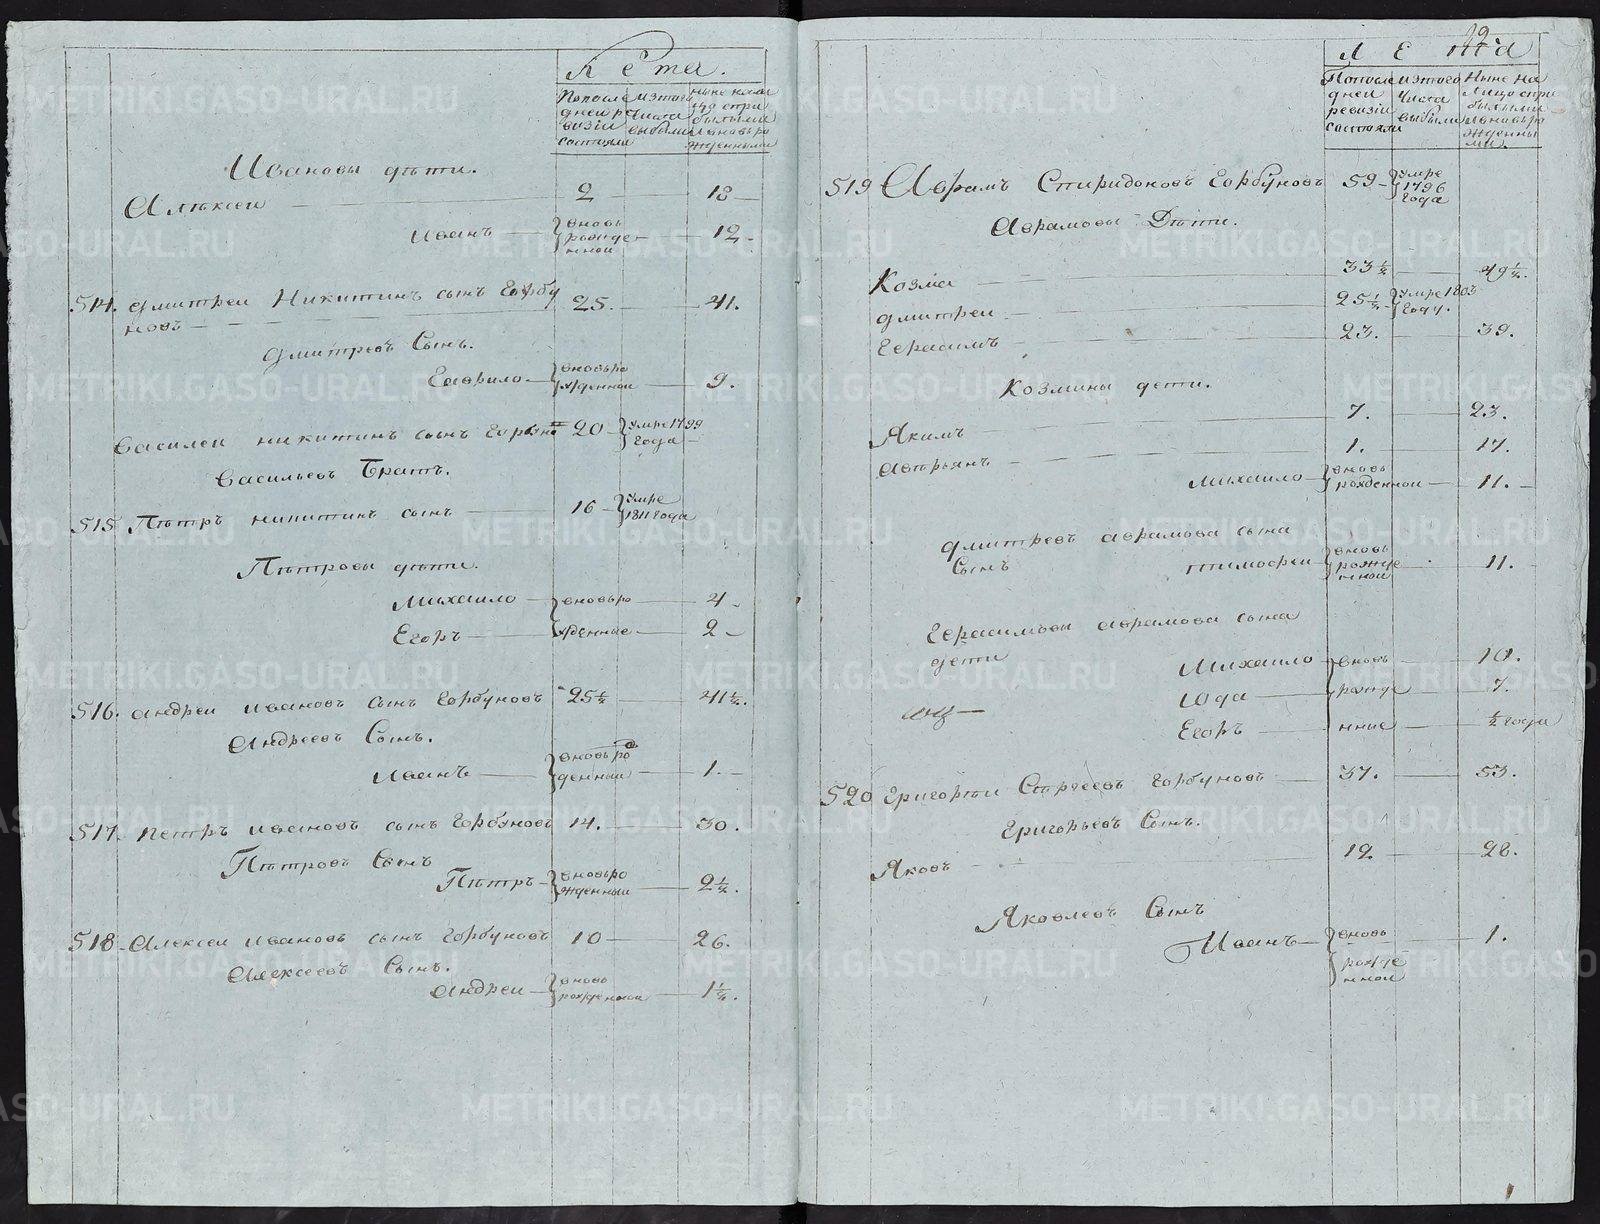 Лета.
Попосле
дней ре
визiи
состояли
изтого
Числа
выбыли
Ивановы дѣти.
Алѣксеи 2 18
иванъ вновь 12
рожде
нной
514. дмитреи Никитинъ сынъ Горбу 25. 41.
новъ
дмитревъ Сынъ.
Гаврило вновьро 9.
жденной
василеи никитинъ сынъ 20 Умре 1799
года
васильевъ Братъ.
515 Пѣтръ никитинъ сынъ 16 Умре
1811 года
Пѣтровы дѣти.
Михаило вновьро 4
Егоръ жденные 2
516. андреи ивановъ сынъ Горбуновъ 25½ 41½.
Андреевъ Сынъ.
иванъ вновьро 1.
жденныи
517. петръ ивановъ сынъ Горбуновъ 14. 30.
Пѣтровъ Сынъ
Пѣтръ вновьро 2½.
жденныи
518 Алексеи ивановъ сынъ Горбуновъ 10 26.
Алексеевъ Сынъ.
андреи вново 1½.
рожденной
Лета
Попосле
дней
ревизiи
состояли
изтого
Числа
выбыли
Ныне На
Лицо спри
былыми
ивновьро
жденны
ми.
519 Аврамъ Спиридоновъ Горбуновъ 59 Умре
1796
года
Аврамовы Дѣти.
Козма 33½ 49½.
дмитреи 25½ Умре 1803
году.
Герасимъ 23. 39.
Козмины дети.
Якимъ 7. 23.
авѣрьянъ 1. 17.
михаило вновь 11.
рожденнои
дмитревъ аврамова сына
Сынъ тимофеи вновь 11.
рожде
нной
Герасимовы аврамова сына
дети
Михаило вновь 10.
Юда рожде 7.
Егоръ нные ½ года
520 Григореи Сергеевъ Горбуновъ 37. 53.
Григорьевъ Сынъ.
Яковъ 12 28.
Яковлевъ Сынъ
Иванъ вновь 1.
рожде
нной
METRIKI.GASO-URAL.RU